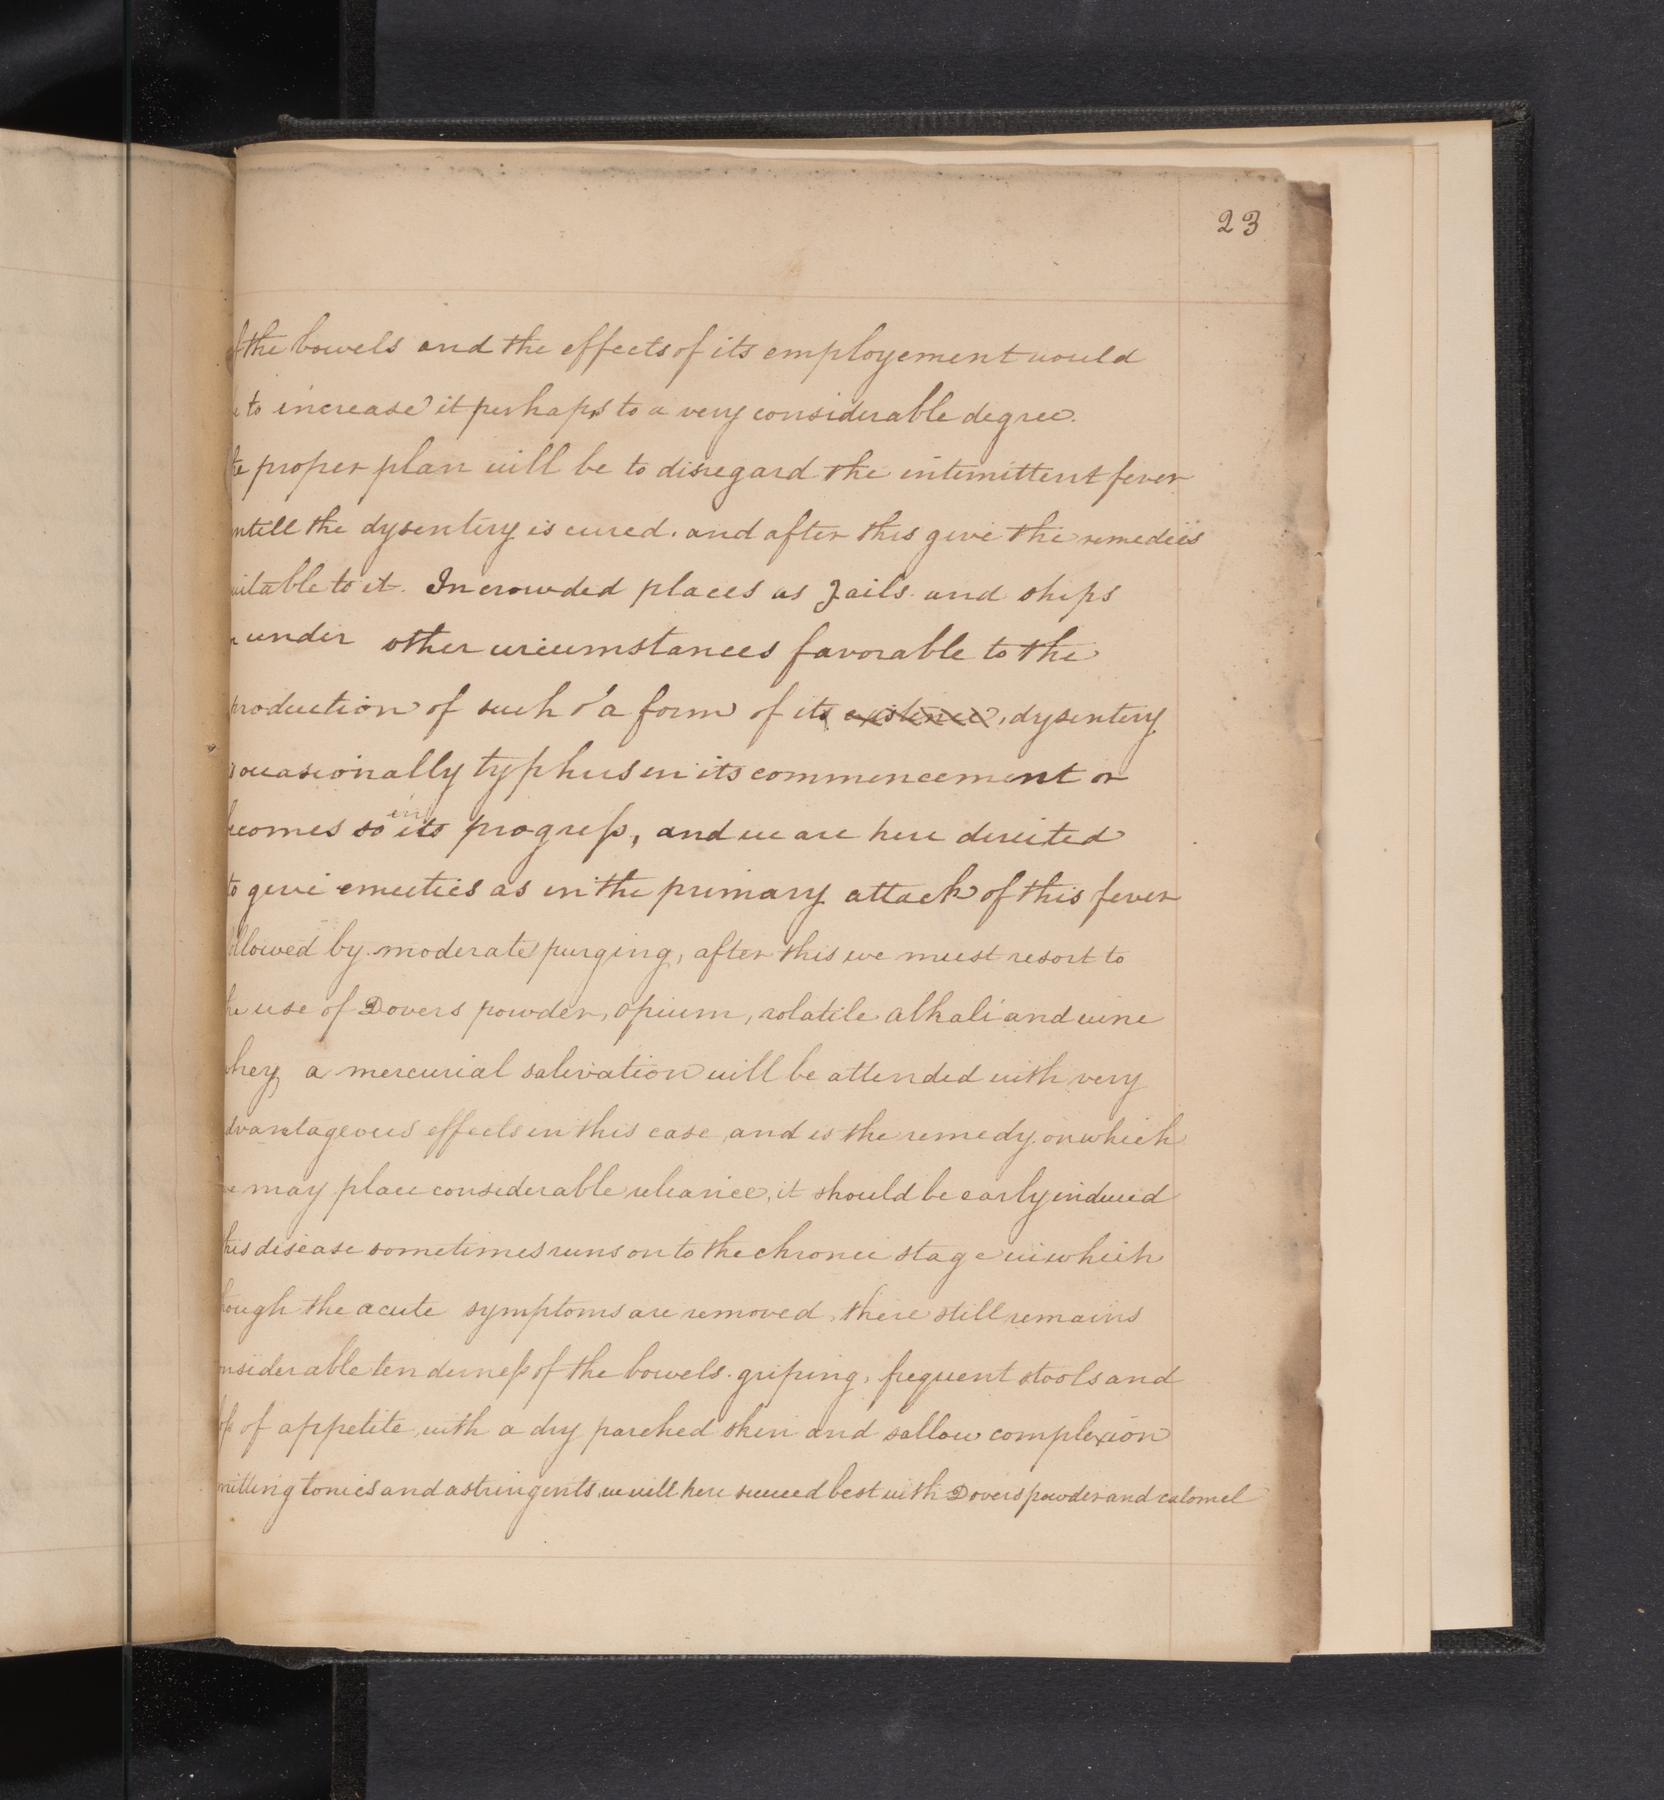 23
of the bowels and the effects of its employement would
e to increase it perhaps to a very considerable degree.
he proper plan will be to disregard the intemittent fever
ntill the dysentery is cured. and after this give the remedies
uitable to it. In crowded places as Jails and ships
r under other circumstances favorable to the
production of such a form of its existence, dysentery
s occasionally typhus in its commencement or
ecomes so in its progress, and we are here directed
to give emetics as in the primary attack of this fever
ollowed by moderate purging, after this we must resort to
he use of Dovers powder, opium, volatile alkali and wine
whey, a mercurial salivation will be attended with very
dvantageous effects in this case, and is the remedy on which
we may place considerable reliance, it should be early induced
this disease sometimes runs on to the chronic stage in which
hough the acute symptoms are removed, there still remains
onsiderable tenderness of the bowels. griping, frequent stools and
loss of appetite with a dry parched skin and sallow complexion
mitting tonics and astringents we will here succeed best with Dovers powder and calomel